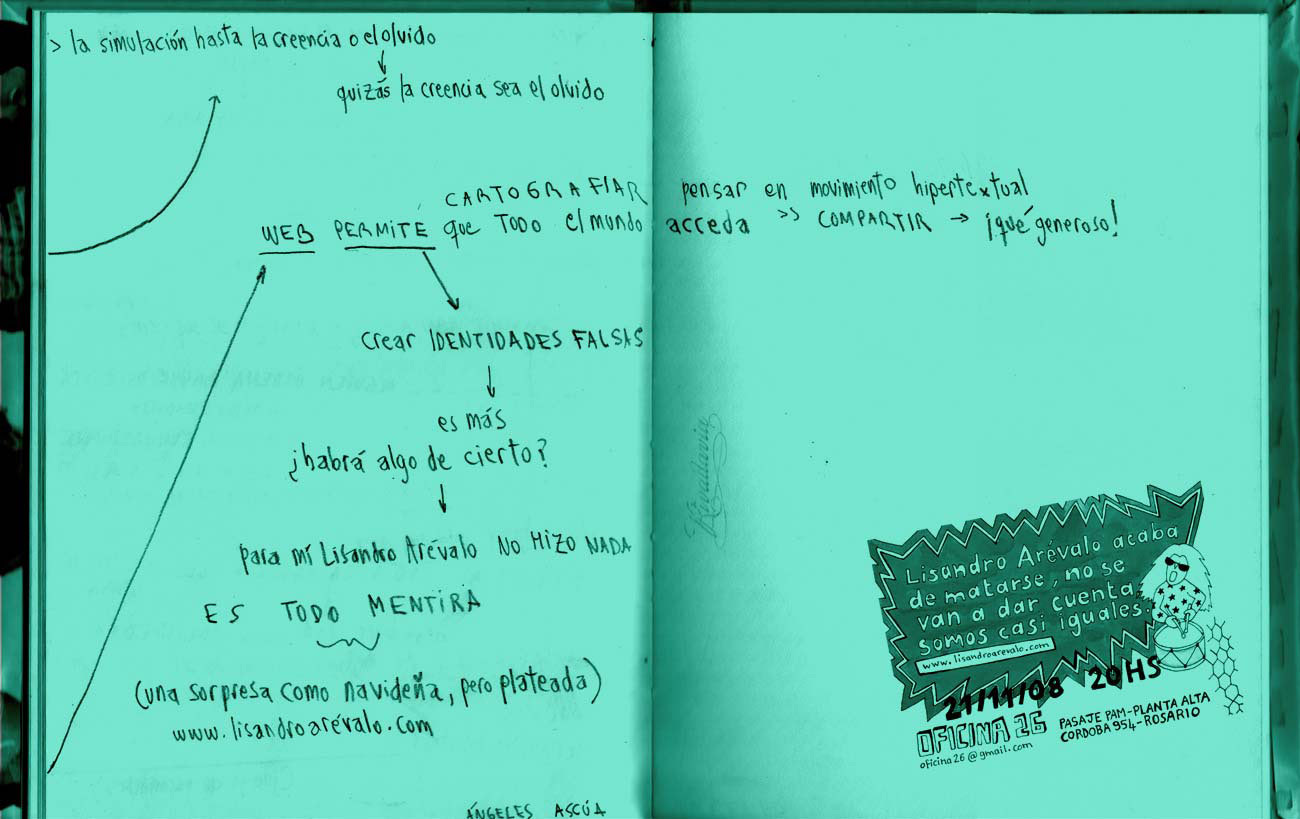 > la simulación hasta la creencia o el olvido
quizás la creencia sea el olvido
CARTOGRAFIAR pensar en movimiento hipertextual
WEB PERMITE que TODO el mundo acceda >> COMPARTIR → ¡qué generoso!
crear IDENTIDADES FALSAS
es más
¿habrá algo de cierto?
para mí Lisandro Arévalo NO HIZO NADA
ES TODO MENTIRA
(una sorpresa como navideña, pero plateada)
www.lisandroarévalo.com
ÁNGELES ASCÚA
Rivadavia
Lisandro Arévalo acaba
de matarse, no se
van a dar cuenta,
somos casi iguales.
www.lisandroarevalo.com
21/11/08 20HS
OFICINA 26
oficina26@gmail.com
PASAJE PAM-PLANTA ALTA
CORDOBA 954-ROSARIO